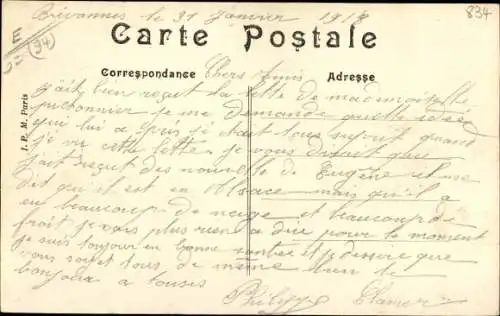 Brévannes le 31 Janvier 1918
834
(94)
Carte Postale
Correspondance Chers Amis Adresse
J. P. M. Paris
J'ait bien reçut la lettre de mademoiselle
je me demande quelle idée
qui lui a pris j'était tous suprit quand
je vu cette lettre je vous dirait que
j'ait reçut des nouvelle de Eugène il me
dit qu'il est en Alsace mais qu'il a
eu beaucoup de neige et beaucoup de
froit je vois plus rien a dire pour le moment
je suis toujour en bonne santer et je desire que
vous soyet tous de même bien le
bonjour a tousses
Philippe Clamer